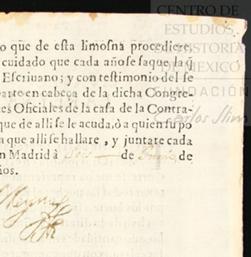 CENTRO DE
ESTUDIOS
DE HISTORIA
DE MÉXICO
FUNDACIÓN
Carlos Slim
o que de esta limosna procediere,
cuidado que cada año se saque la q̃
Escriuano; y con testimonio del se
parte en cabeça de la dicha Congre-
es Oficiales de la casa de la Contra-
que de alli se le acuda, ò a quien su po
a que alli se hallare, y juntare cada
n Madrid à de de
ios.